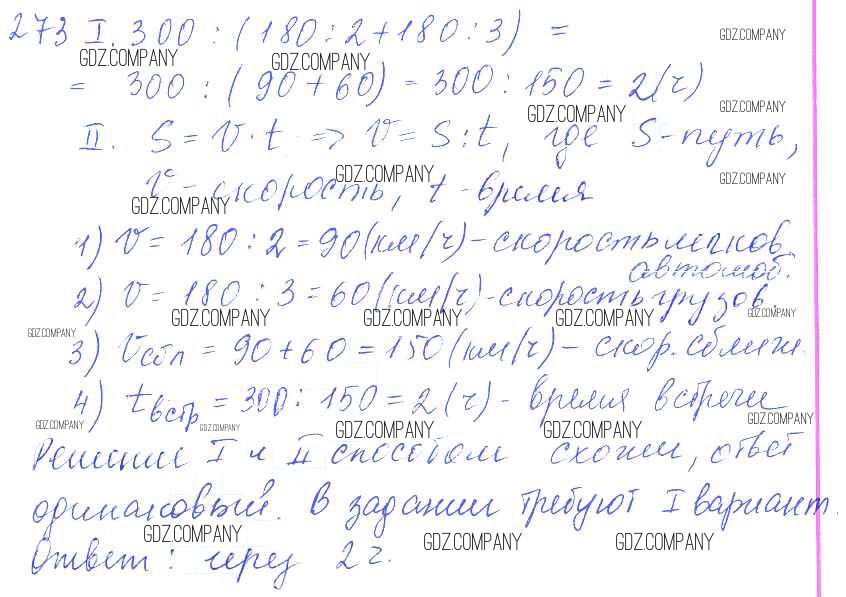 273 I. 300 : (180 : 2 + 180 : 3) =
GDZ.COMPANY GDZ.COMPANY GDZ.COMPANY
= 300 : (90 + 60) = 300 : 150 = 2(ч)
GDZ.COMPANY GDZ.COMPANY
II. S = V · t => V = S : t, где S - путь,
GDZ.COMPANY GDZ.COMPANY
V - скорость, t - время
GDZ.COMPANY
1) V = 180 : 2 = 90 (км/ч) - скорость легков.
автомоб.
2) V = 180 : 3 = 60 (км/ч) - скорость грузов.
GDZ.COMPANY GDZ.COMPANY GDZ.COMPANY GDZ.COMPANY
GDZ.COMPANY
3) Vсбл = 90 + 60 = 150 (км/ч) - скор. сближ.
4) tвстр = 300 : 150 = 2 (ч) - время встречи
GDZ.COMPANY GDZ.COMPANY GDZ.COMPANY GDZ.COMPANY GDZ.COMPANY
Решении I и II способом схожи, ответ
одинаковый. В задании требуют I вариант.
GDZ.COMPANY GDZ.COMPANY GDZ.COMPANY
Ответ: через 2 ч.